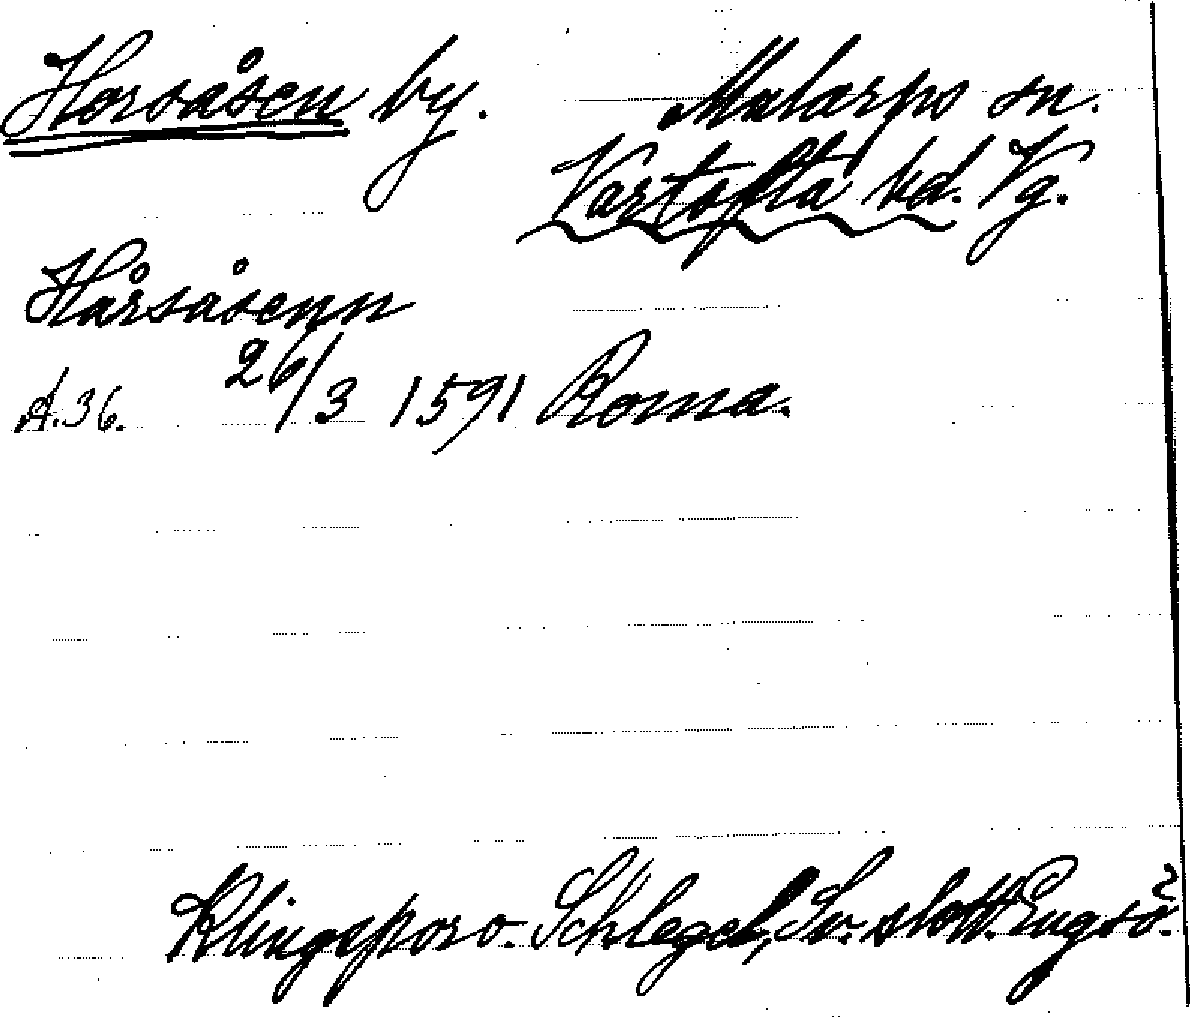 Horsåsen by. Mularps sn.
Vartofta hd. Vg.
Hårsåsenn
26/3 1591 Roma.
A. 36.
Klingspor o. Schlegel, Sv. slott. Engsö.